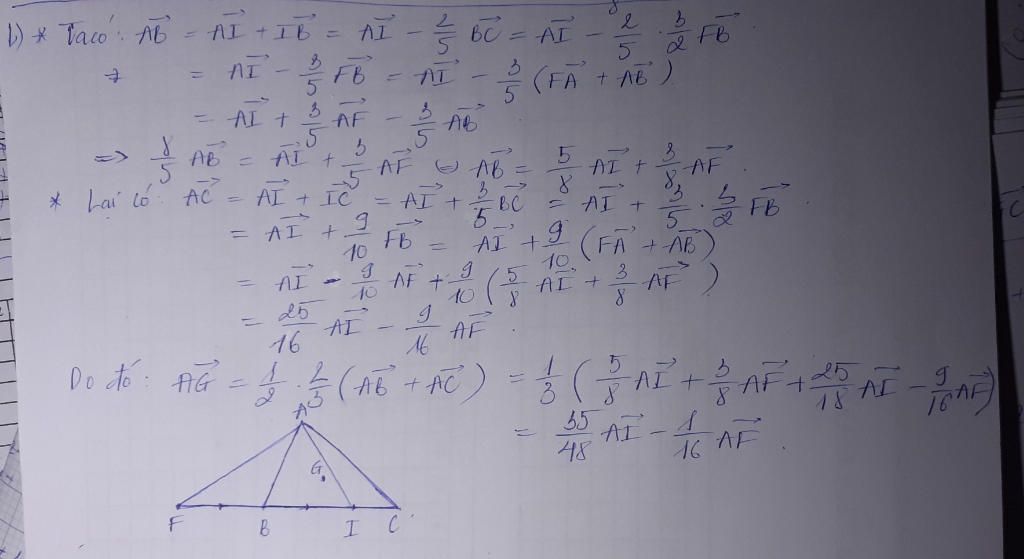 b) * Ta có: $\overrightarrow{AB} = \overrightarrow{AI} + \overrightarrow{IB} = \overrightarrow{AI} - \frac{2}{5}\overrightarrow{BC} = \overrightarrow{AI} - \frac{2}{5} \cdot \frac{3}{2}\overrightarrow{FB}$.
$= \overrightarrow{AI} - \frac{3}{5}\overrightarrow{FB} = \overrightarrow{AI} - \frac{3}{5}(\overrightarrow{FA} + \overrightarrow{AB})$
$= \overrightarrow{AI} + \frac{3}{5}\overrightarrow{AF} - \frac{3}{5}\overrightarrow{AB}$
$\Rightarrow \frac{8}{5}\overrightarrow{AB} = \overrightarrow{AI} + \frac{3}{5}\overrightarrow{AF} \Leftrightarrow \overrightarrow{AB} = \frac{5}{8}\overrightarrow{AI} + \frac{3}{8}\overrightarrow{AF}$.
* Lại có: $\overrightarrow{AC} = \overrightarrow{AI} + \overrightarrow{IC} = \overrightarrow{AI} + \frac{3}{5}\overrightarrow{BC} = \overrightarrow{AI} + \frac{3}{5} \cdot \frac{3}{2}\overrightarrow{FB}$.
$= \overrightarrow{AI} + \frac{9}{10}\overrightarrow{FB} = \overrightarrow{AI} + \frac{9}{10}(\overrightarrow{FA} + \overrightarrow{AB})$
$= \overrightarrow{AI} - \frac{9}{10}\overrightarrow{AF} + \frac{9}{10}(\frac{5}{8}\overrightarrow{AI} + \frac{3}{8}\overrightarrow{AF})$
$= \frac{25}{16}\overrightarrow{AI} - \frac{9}{16}\overrightarrow{AF}$.
Do đó: $\overrightarrow{AG} = \frac{1}{2} \cdot \frac{2}{3}(\overrightarrow{AB} + \overrightarrow{AC}) = \frac{1}{3}(\frac{5}{8}\overrightarrow{AI} + \frac{3}{8}\overrightarrow{AF} + \frac{25}{18}\overrightarrow{AI} - \frac{9}{16}\overrightarrow{AF})$
$= \frac{35}{48}\overrightarrow{AI} - \frac{1}{16}\overrightarrow{AF}$.
A
G
F B I C